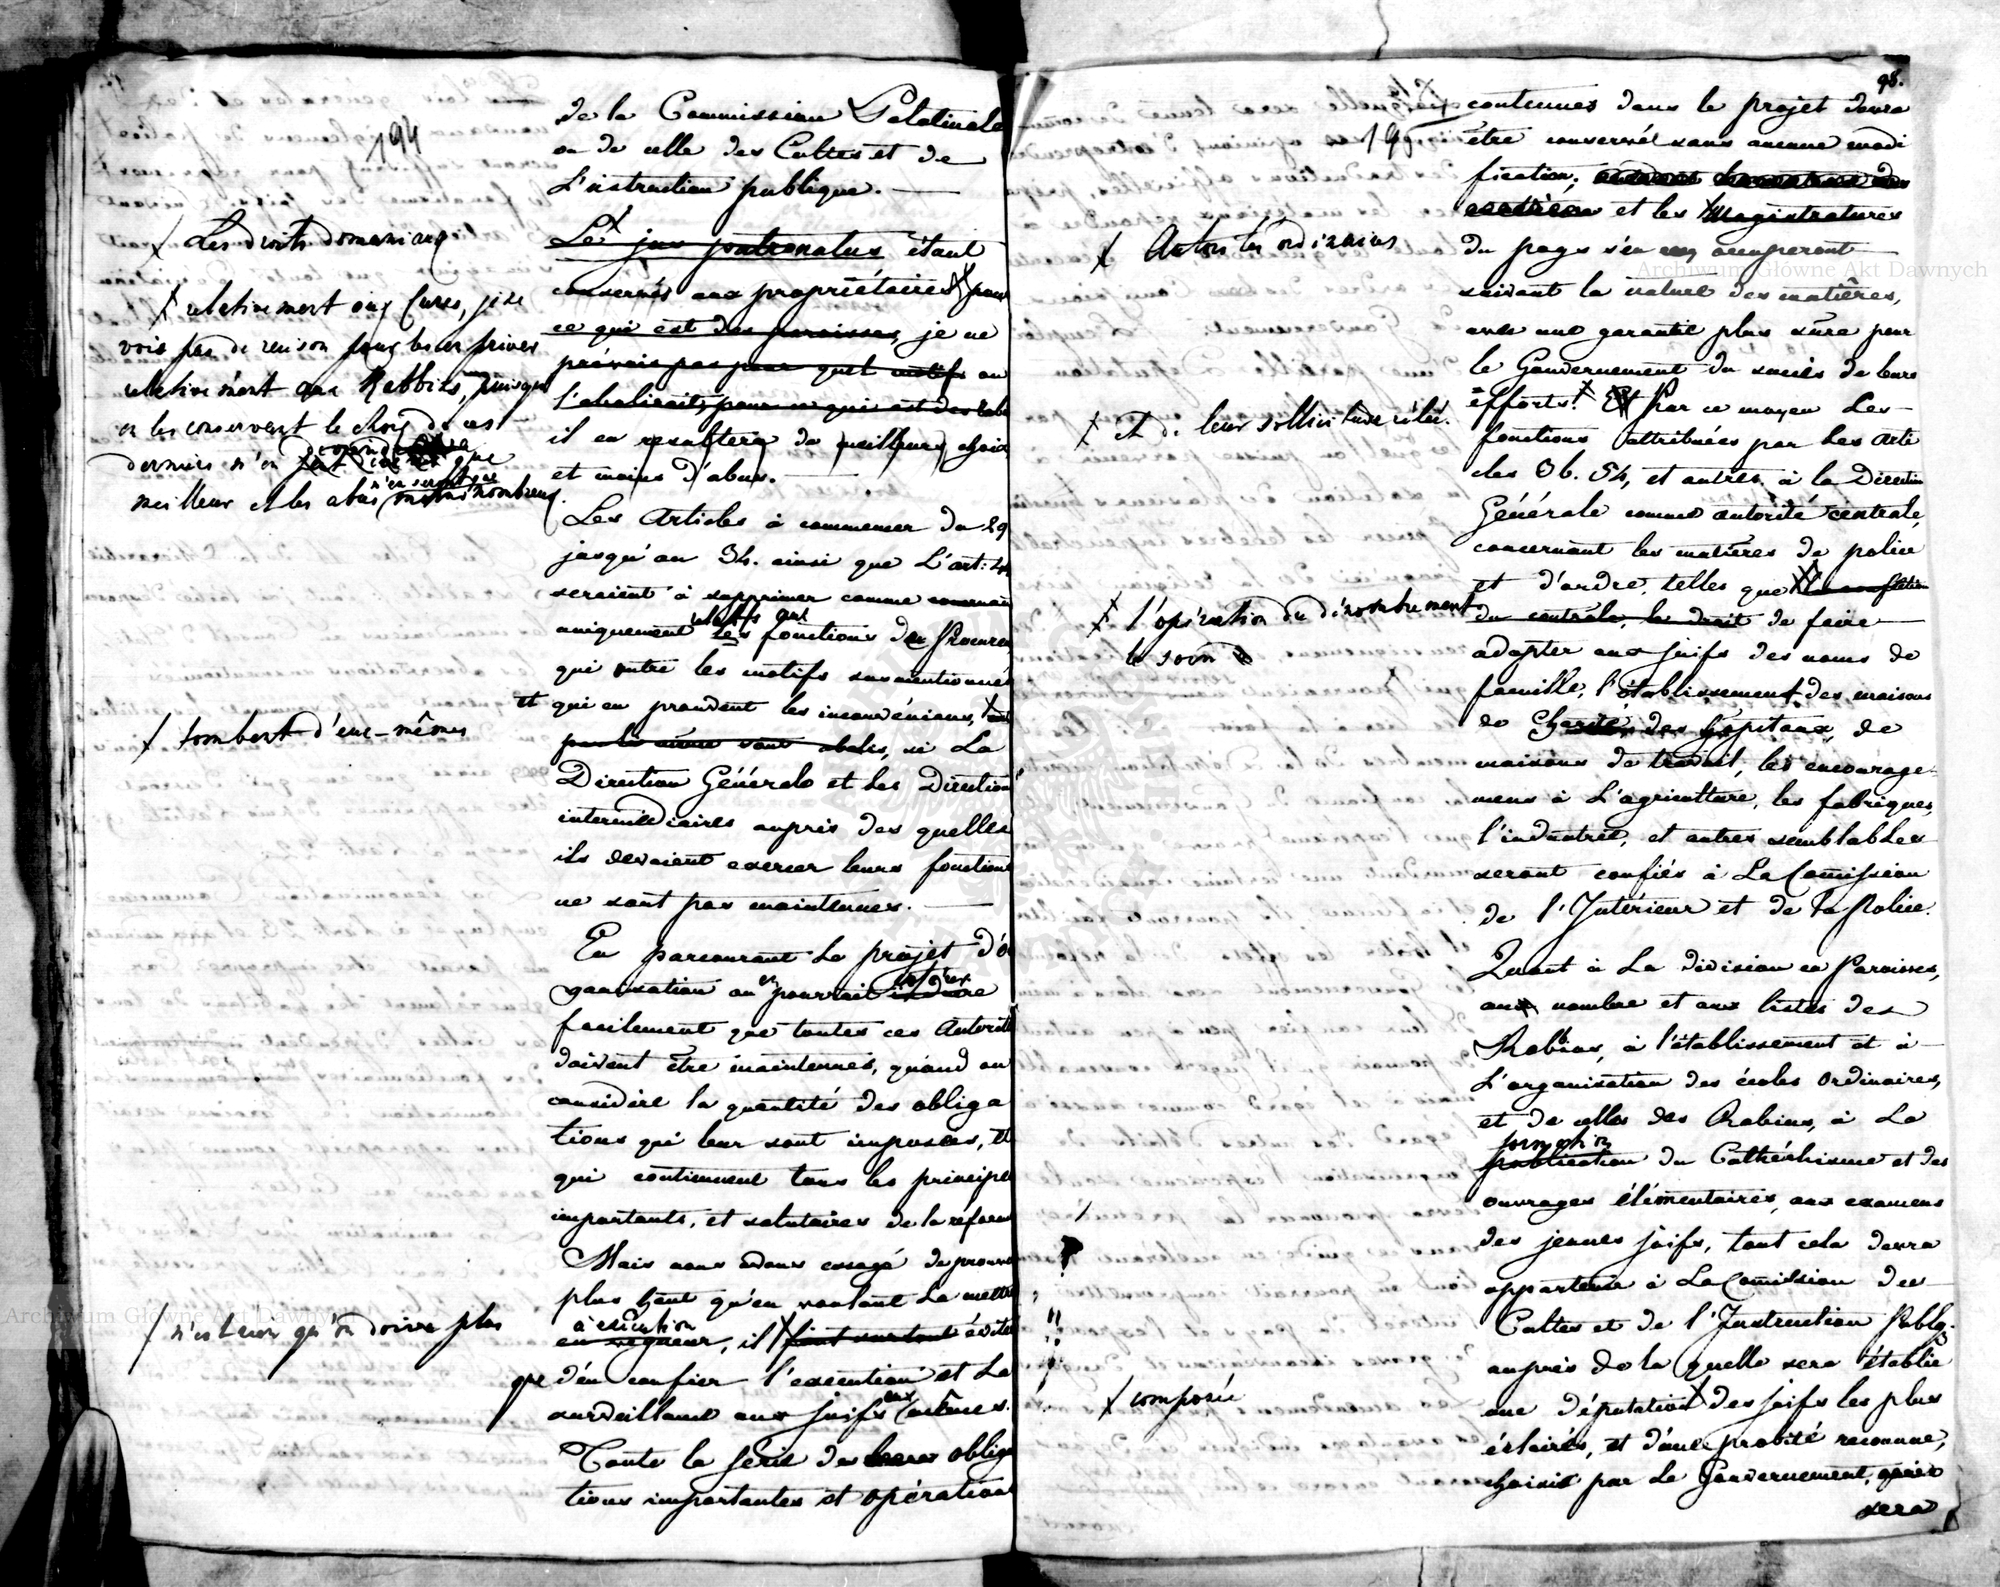 194
de la Commission Palatinale
ou de celle des Cultes et de
L'instruction publique.
Les droits domaniaux
Le jus patronatus étant
conservés aux propriétaires pour
relativement aux Cures, je ne
ce qui est des paroisses, je ne
vois pas de raison pour les en priver
prévois pas pour quel motif on
relativement aux Rabbins, puisque
l'abolirait, pour ce qui est des
en les conservant le choix de ces
il en resultera de meilleurs choix
derniers n'en que
et moins d'abus.
n'en seront que
meilleur et les abus moins nombreux.
Les Articles à commencer du 29
jusqu'au 34. ainsi que L'art:
seraient à supprimer comme
relatifs aux
uniquement les fonctions de Procureur
qui outre les motifs susmentionnés
et qui en prouvent les inconvéniens,
tombent d'eux-mêmes
si La
Direction Générale et les Direction
intermédiaires auprès des quelles
ils devaient exercer leurs fonctions
ne sont pas maintenues.
En parcourant le projet d'or
ganisation on en pourrait
facilement que toutes ces Autorité
doivent être maintenues, quand on
considère la quantité des obliga
tions qui leur sont imposées, et
qui contiennent tous les principes
importants, et salutaires de la reforme
Mais nous avons essayé de prouver
plus haut qu'en voulant la mettre
à exécution
en vigueur, il faut surtout éviter
n'est rien qu'on doive plus
que d'en confier l'exécution et La
surveillance aux juifs eux mêmes.
Toute la série des obliga
tions importantes et opérations
95.
195
contenues dans le projet devra
être conservé sans aucune modi
fication;
et les Magistratures
Autorités ordinaires
du pays s'en occuperont
suivant la nature des matières,
avec une garantie plus sûre pour
le Gouvernement du succès de leurs
efforts. Par ce moyen Les
et de leur sollicitude réelle.
fonctions attribuées par les Arti
cles 36. 54, et autres à la Direction
Générale comme autorité centrale,
concernant les matières de police
et d'ordre, telles que
l'opération du dénombrement
du contrôle, le droit de faire
le soin
adopter aux juifs des noms de
famille, l'établissement des maisons
de Charité, des hôpitaux, de
maisons de travail, les encourage-
mens à L'agriculture, les fabriques,
l'industrie, et autres semblables
seront confiés à La Comission
de l'Intérieur et de la Police.
Quant à La division en Paroisses,
aux nombre et aux listes des
Rabins, à l'établissement et à
L'organisation des écoles ordinaires,
et de celles des Rabins, à La
formation
publication du Cathéchisme et des
ouvrages élémentaires, aux examens
des jeunes juifs, tout cela devra
appartenir à La Comission des
Cultes et de l'Instruction Publq.
auprès de la quelle sera établie
une députation des juifs les plus
composée
éclairés, et d'une probité reconnue,
choisis par Le Gouvernement, après
sera
Archiwum Główne Akt Dawnych
Archiwum Główne Akt Dawnych